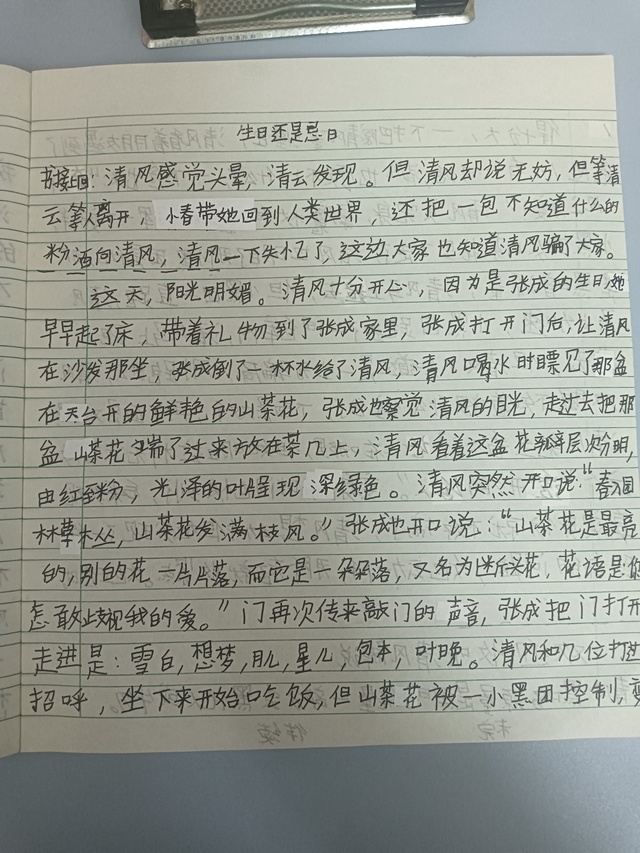 生日还是忌日
书接上回：清风感觉头晕，清云发现。但清风却说无妨，但等清
云等人离开，小春带她回到人类世界，还把一包不知道什么的
粉洒向清风，清风一下失忆了，这边大家也知道清风骗了大家。
这天，阳光明媚。清风十分开心，因为是张成的生日，她
早早起了床，带着礼物到了张成家里，张成打开门后，让清风
在沙发那坐，张成倒了一杯水给了清风，清风喝水时瞟见了那盆
在天台开的鲜艳的山茶花，张成也察觉清风的目光，走过去把那
盆山茶花端了过来放在茶几上，清风看着这盆花瓣层次分明，
由红至粉，光泽的叶呈现深绿色。清风突然开口说：“春入园
林草木丛，山茶花发满枝风。”张成也开口说：“山茶花是最亮
的，别的花一片片落，而它是一朵朵落，又名为断头花，花语是你
怎敢歧视我的爱。”门再次传来敲门的声音，张成把门打开
走进是：雪白，想梦，月儿，星儿，包本，叶晚。清风和几位打过
招呼，坐下来开始吃饭，但山茶花被一小黑团控制，